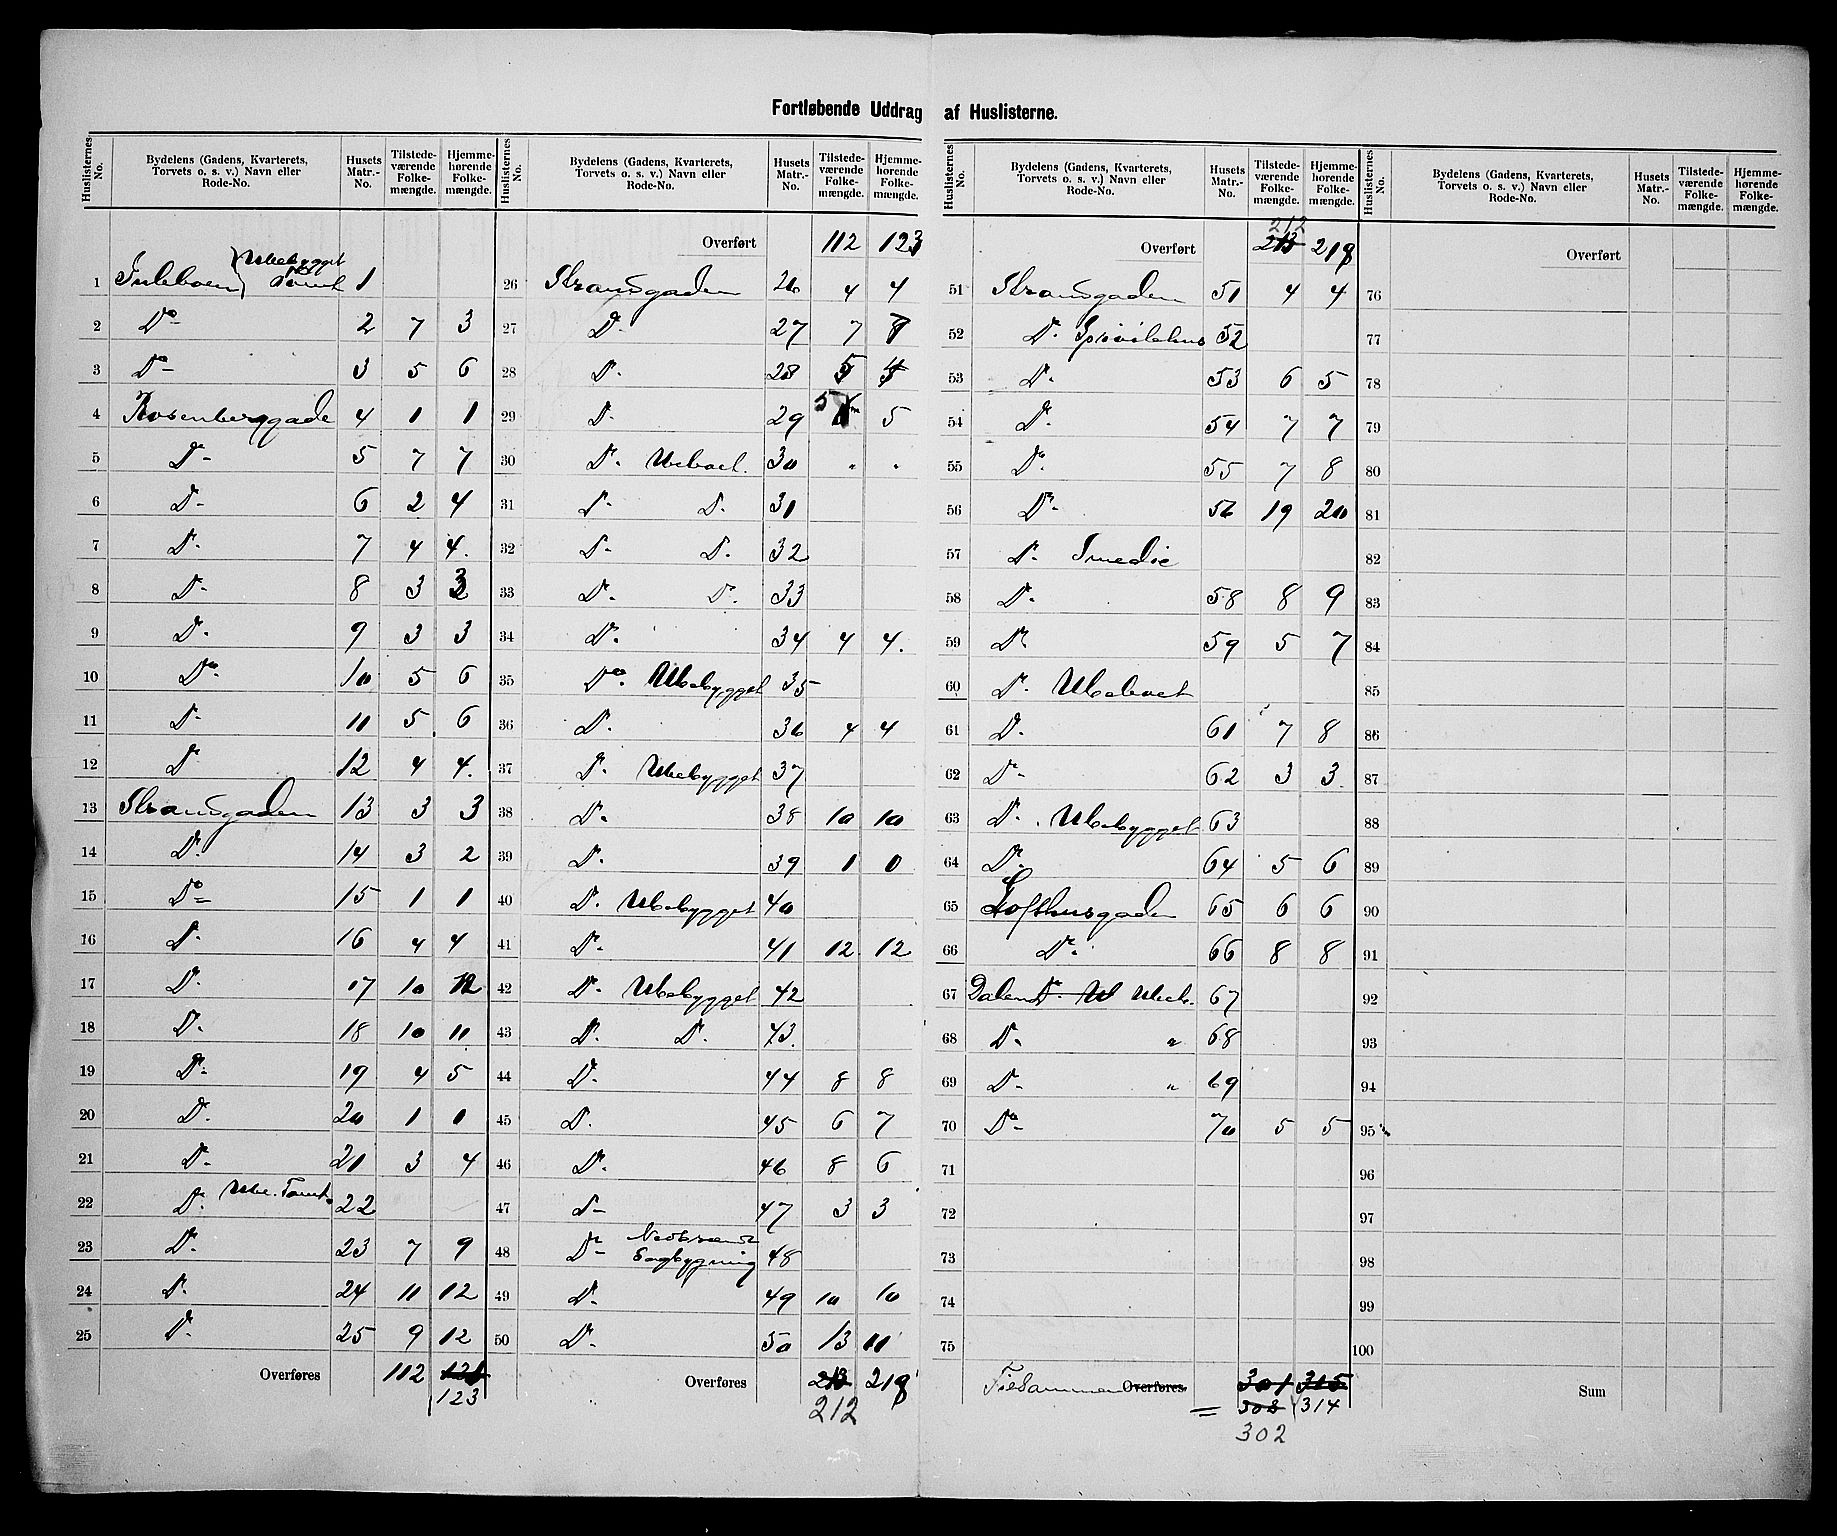 Fortløbende Uddrag af Huslisterne.
Huslisternes No. | Bydelens (Gadens, Kvarterets, Torvets o. s. v.) Navn eller Rode-No. | Husets Matr.-No. | Tilstedeværende Folkemængde. | Hjemmehørende Folkemængde.
1 Ubebygget Tomt 1
2 Do 2 7 3
3 Do 3 5 6
4 Rosenberggade 4 1 1
5 Do 5 7 7
6 Do 6 2 4
7 Do 7 4 4.
8 Do 8 3 3
9 Do 9 3 3
10 Do 10 5 6
11 Do 11 5 6
12 Do 12 4 4.
13 Strandgaden 13 3 3
14 Do 14 3 2
15 Do 15 1 1
16 Do 16 4 4
17 Do 17 10 12
18 Do 18 10 11
19 Do 19 4 5
20 Do 20 1 1
21 Do 21 3 4
22 Do Ube. Tomt 22
23 Do 23 7 9
24 Do 24 11 12
25 Do 25 9 12
Overføres 112 121
123
Huslisternes No. | Bydelens (Gadens, Kvarterets, Torvets o. s. v.) Navn eller Rode-No. | Husets Matr.-No. | Tilstedeværende Folkemængde. | Hjemmehørende Folkemængde.
Overført 112 123
26 Strandgaden 26 4 4
27 Do 27 7 8
28 Do 28 5 4
29 Do 29 5 5
30 Do Ubeboet. 30 " "
31 Do Do 31
32 Do Do 32
33 Do Do 33
34 Do 34 4 4.
35 Do Ubebygget 35
36 Do 36 4 4
37 Do Ubebygget 37
38 Do 38 10 10
39 Do 39 1 0
40 Do Ubebygget 40
41 Do 41 12 12
42 Do Ubebygget 42
43 Do Do 43.
44 Do 44 8 8
45 Do 45 6 7
46 Do 46 8 6
47 Do 47 3 3
48 Do 48
49 Do 49 10 10
50 Do 50 13 11
Overføres 213 218
212
Huslisternes No. | Bydelens (Gadens, Kvarterets, Torvets o. s. v.) Navn eller Rode-No. | Husets Matr.-No. | Tilstedeværende Folkemængde. | Hjemmehørende Folkemængde.
212
Overført 213 218
51 Strandgaden 51 4 4
52 Do 52
53 Do 53 6 5
54 Do 54 7 7
55 Do 55 7 8
56 Do 56 19 20
57 Do Smedie
58 Do 58 8 9
59 Do 59 5 7
60 Do Ubeboet
61 Do 61 7 8
62 Do 62 3 3
63 Do Ubebygget 63
64 Do 64 5 6
65 Lofthusgaden 65 6 6
66 Do 66 8 8
67 Dalen Do U Ubeb. 67
68 Do " 68
69 Do " 69
70 Do 70 5 5
71
72
73
74
75
Tilsammen Overføres 301 315
= 303 314
302
Huslisternes No. | Bydelens (Gadens, Kvarterets, Torvets o. s. v.) Navn eller Rode-No. | Husets Matr.-No. | Tilstedeværende Folkemængde. | Hjemmehørende Folkemængde.
Overført
76
77
78
79
80
81
82
83
84
85
86
87
88
89
90
91
92
93
94
95
96
97
98
99
100
Sum